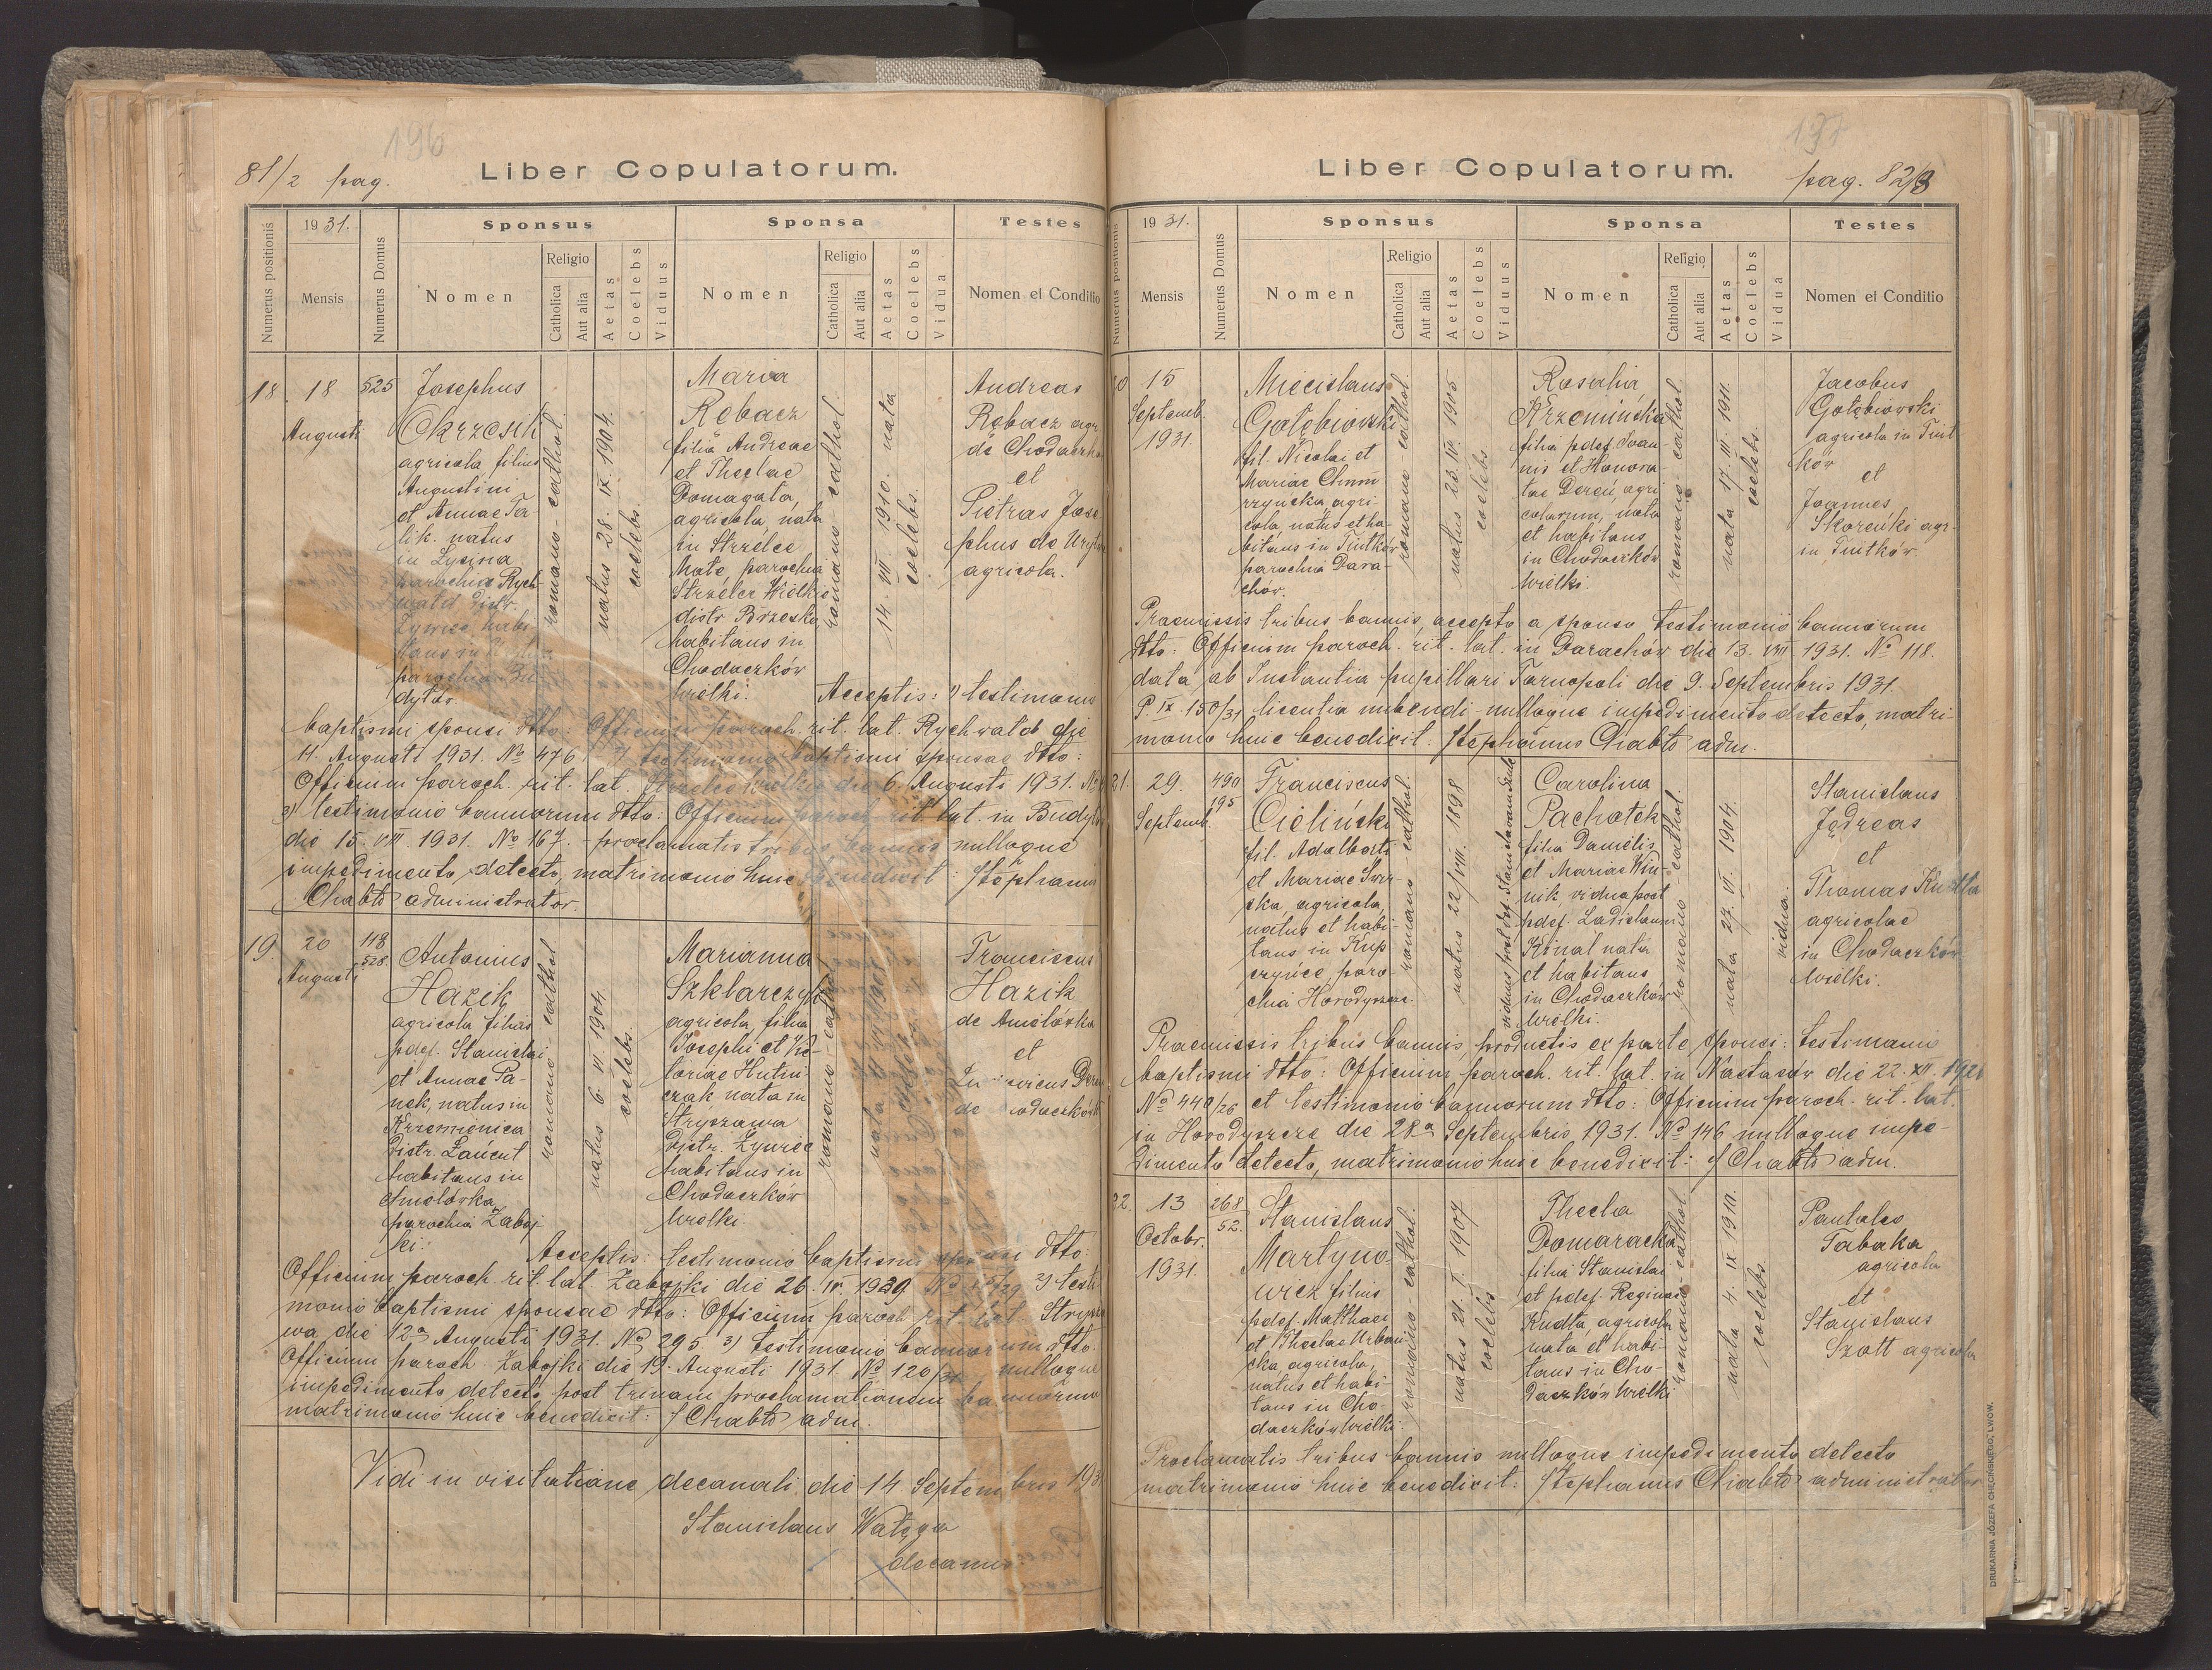 196
81/2 pag.
Liber Copulatorum.
Numerus positionis
1931.
Mensis
Numerus Domus
Sponsus
Nomen
Religio
Catholica
Aut alia
Aetas
Coelebs
Viduus
Sponsa
Nomen
Religio
Catholica
Aut alia
Aetas
Coelebs
Vidua
Testes
Nomen et Conditio
18.
18
Augusti
525
Josephus
Okrzesik
agricola filius
Augustini
et Annae Ta-
lik. natus
in Łysina
parochia Rych
wałd distr.
Żywiec, habi
tans in
parochia Bu
dyłów
romano-cathol.
natus 28. IX. 1904.
coelebs
Maria
Rębacz
filia Andreae
et Theclae
Domagała,
agricola, nata
in Strzelce
Małe, parochia
Strzelce Wielkie
distr. Brzesko
habitans in
Chodaczków
wielki.
romano-cathol.
14. VII. 1910 nata
coelebs.
Andreas
Rębacz agr.
de Chodaczk
et
Pietras Jose
phus de
agricola.
Acceptis: 1) testimonio
baptismi sponsi dtto: Officium paroch. rit. lat. Rychwałd die
11. Augusti 1931. No 476 2) testimonio baptismi sponsae dtto:
Officium paroch. rit. lat. Strzelce wielkie die 6. Augusti 1931. No
3) testimonio bannorum dtto: Officium paroch. rit. lat. in Budył
die 15. VIII. 1931. No 167. - proclamatis tribus bannis nulloque
impedimento detecto, matrimonio huic benedixit: Stephanus
Chabło administrator.
19.
20
Augusti
118
528.
Antonius
Hazik
agricola filius
pdef. Stanislai
et Annae Pa-
nek, natus in
Krzemienica
distr. Łańcut
habitans in
Anielówka
parochia Zaboj
ki.
romano cathol
natus 6. VI. 1904.
coelebs.
Marianna
Szklarczyk
agricola, filia
Josephi et Vic-
toriae Hutni
czak nata in
Stryszawa
distr. Żywiec
habitans in
Chodaczków
wielki.
romano-cathol
nata
coelebs
Franciscus
Hazik
de Anielówka
et
Acceptis: testimonio baptismi sponsi dtto:
Officium paroch. rit. lat. Zabojki die 26. IV. 1929 2) testi
monio baptismi sponsae dtto: Officium paroch. rit. lat. Strysza
wa die 12a Augusti 1931. No 295. 3) testimonio bannorum dtto:
Officium paroch. Zabojki die 19. Augusti 1931. No 120/31 nulloque
impedimento detecto, post trinam proclamationem bannorum
matrimonio huic benedixit: S Chabło adm.
Vidi in visitatione decanali die 14 Septembris 193
Stanislaus Wałęga
decanus
197
Liber Copulatorum.
pag. 82/3
Numerus positionis
1931.
Mensis
Numerus Domus
Sponsus
Nomen
Religio
Catholica
Aut alia
Aetas
Coelebs
Viduus
Sponsa
Nomen
Religio
Catholica
Aut alia
Aetas
Coelebs
Vidua
Testes
Nomen et Conditio
20
15
Septemb.
1931.
Miecislaus
Gołębiowski
fil. Nicolai et
Mariae Chmu
rzyńska, agri-
cola, natus et ha-
bitans in Tiutków
parochia Dara-
chów.
romano-cathol.
natus 1905.
coelebs
Rosalia
Krzemińska
filia pdef. Joan-
nis et Honora-
tae Dereń, agri
colarum, nata
et habitans
in Chodaczków
wielki.
romano-cathol.
nata 17. III. 1911.
coelebs.
Jacobus
Gołębiowski
agricola in Tiut
ków
et
Joannes
Skoreńki agr-
in Tiutków.
Praemissis tribus bannis, accepto a sponso testimonio bannorum
dtto: Officium paroch. rit. lat. in Darachów die 13. VIII. 1931. No 118.
data ab Instantia pupillari Tarnopoli die 9. Septembris 1931.
P IX 150/31 licentia nubendi - nulloque impedimento detecto, matri-
monio huic benedixit. Stephanus Chabło adm.
21.
29.
Septemb.
490
195
Franciscus
Cieliński
fil. Adalberti
et Mariae
agricola,
natus et habi-
tans in Kup
czyńce, paro-
chia Horodyszcze.
romano cathol.
natus 22/VIII. 1898
Carolina
Pachołek
filia Danielis
et Mariae Win-
nik, vidua post
pdef. Ladislaum
Kinal nata
et habitans
in Chodaczków
wielki.
romano cathol.
nata 27. VI. 1904.
vidua.
Stanislaus
Jędreas
et
Thomas Kudła
agricolae
in Chodaczków
wielki.
Praemissis tribus bannis, productis ex parte sponsi: testimonio
baptismi dtto: Officium paroch. rit. lat. in Nastasów die 22. XII. 192
No 449/26 et testimonio bannorum dtto: Officium paroch. rit. lat.
in Horodyszcze die 28a Septembris 1931. No 146 nulloque impe-
dimento detecto, matrimonio huic benedixit: S Chabło adm.
22.
13
Octobr.
1931.
268
52.
Stanislaus
Martyno-
wicz filius
pdef. Matthaei
et Theclae Urbań
ska agricola,
natus et habi-
tans in Cho-
daczków wielki.
romano-cathol.
natus 21. I. 1907
coelebs
Thecla
Domaracka
filia Stanislai
et pdef. Reginae
Kudła, agricola
nata et habi-
tans in Cho-
daczków wielki
romano cathol.
nata 4. IX 1910.
coelebs.
Pantaleo
Tabaka
agricola
et
Stanislaus
Szott agricola
Proclamatis tribus bannis nulloque impedimento detecto
matrimonio huic benedixit: Stephanus Chabło administrator
DRUKARNIA JÓZEFA CHĘCIŃSKIEGO, LWÓW.